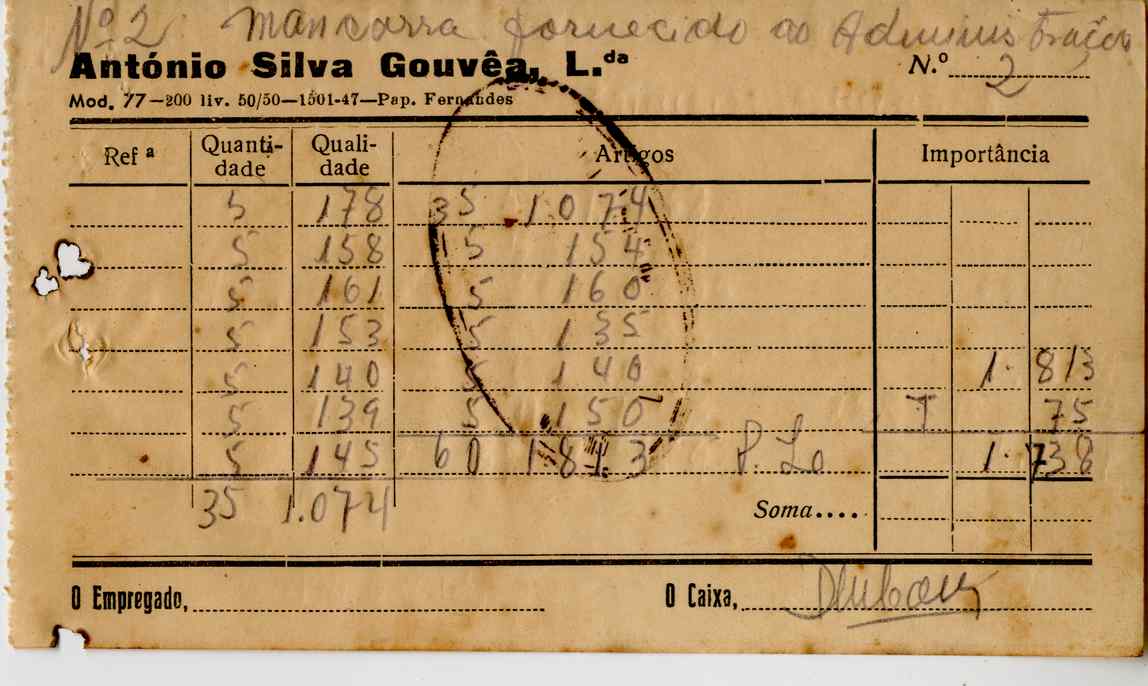 Nº 2. Mancarra fornecido ao Administração
António Silva Gouvêa, L.da
N.º 2
Mod. 77—200 liv. 50/50—1501-47—Pap. Fernandes
Ref ª Quanti-dade Quali-dade Artigos Importância
5 178 35 1074
5 158 5 154
5 161 5 160
5 153 5 135
5 140 5 140 1. 813
5 139 5 150 T 75
5 145 60 1813 P. Lo 1. 738
35 1.074 Soma....
O Empregado, O Caixa,